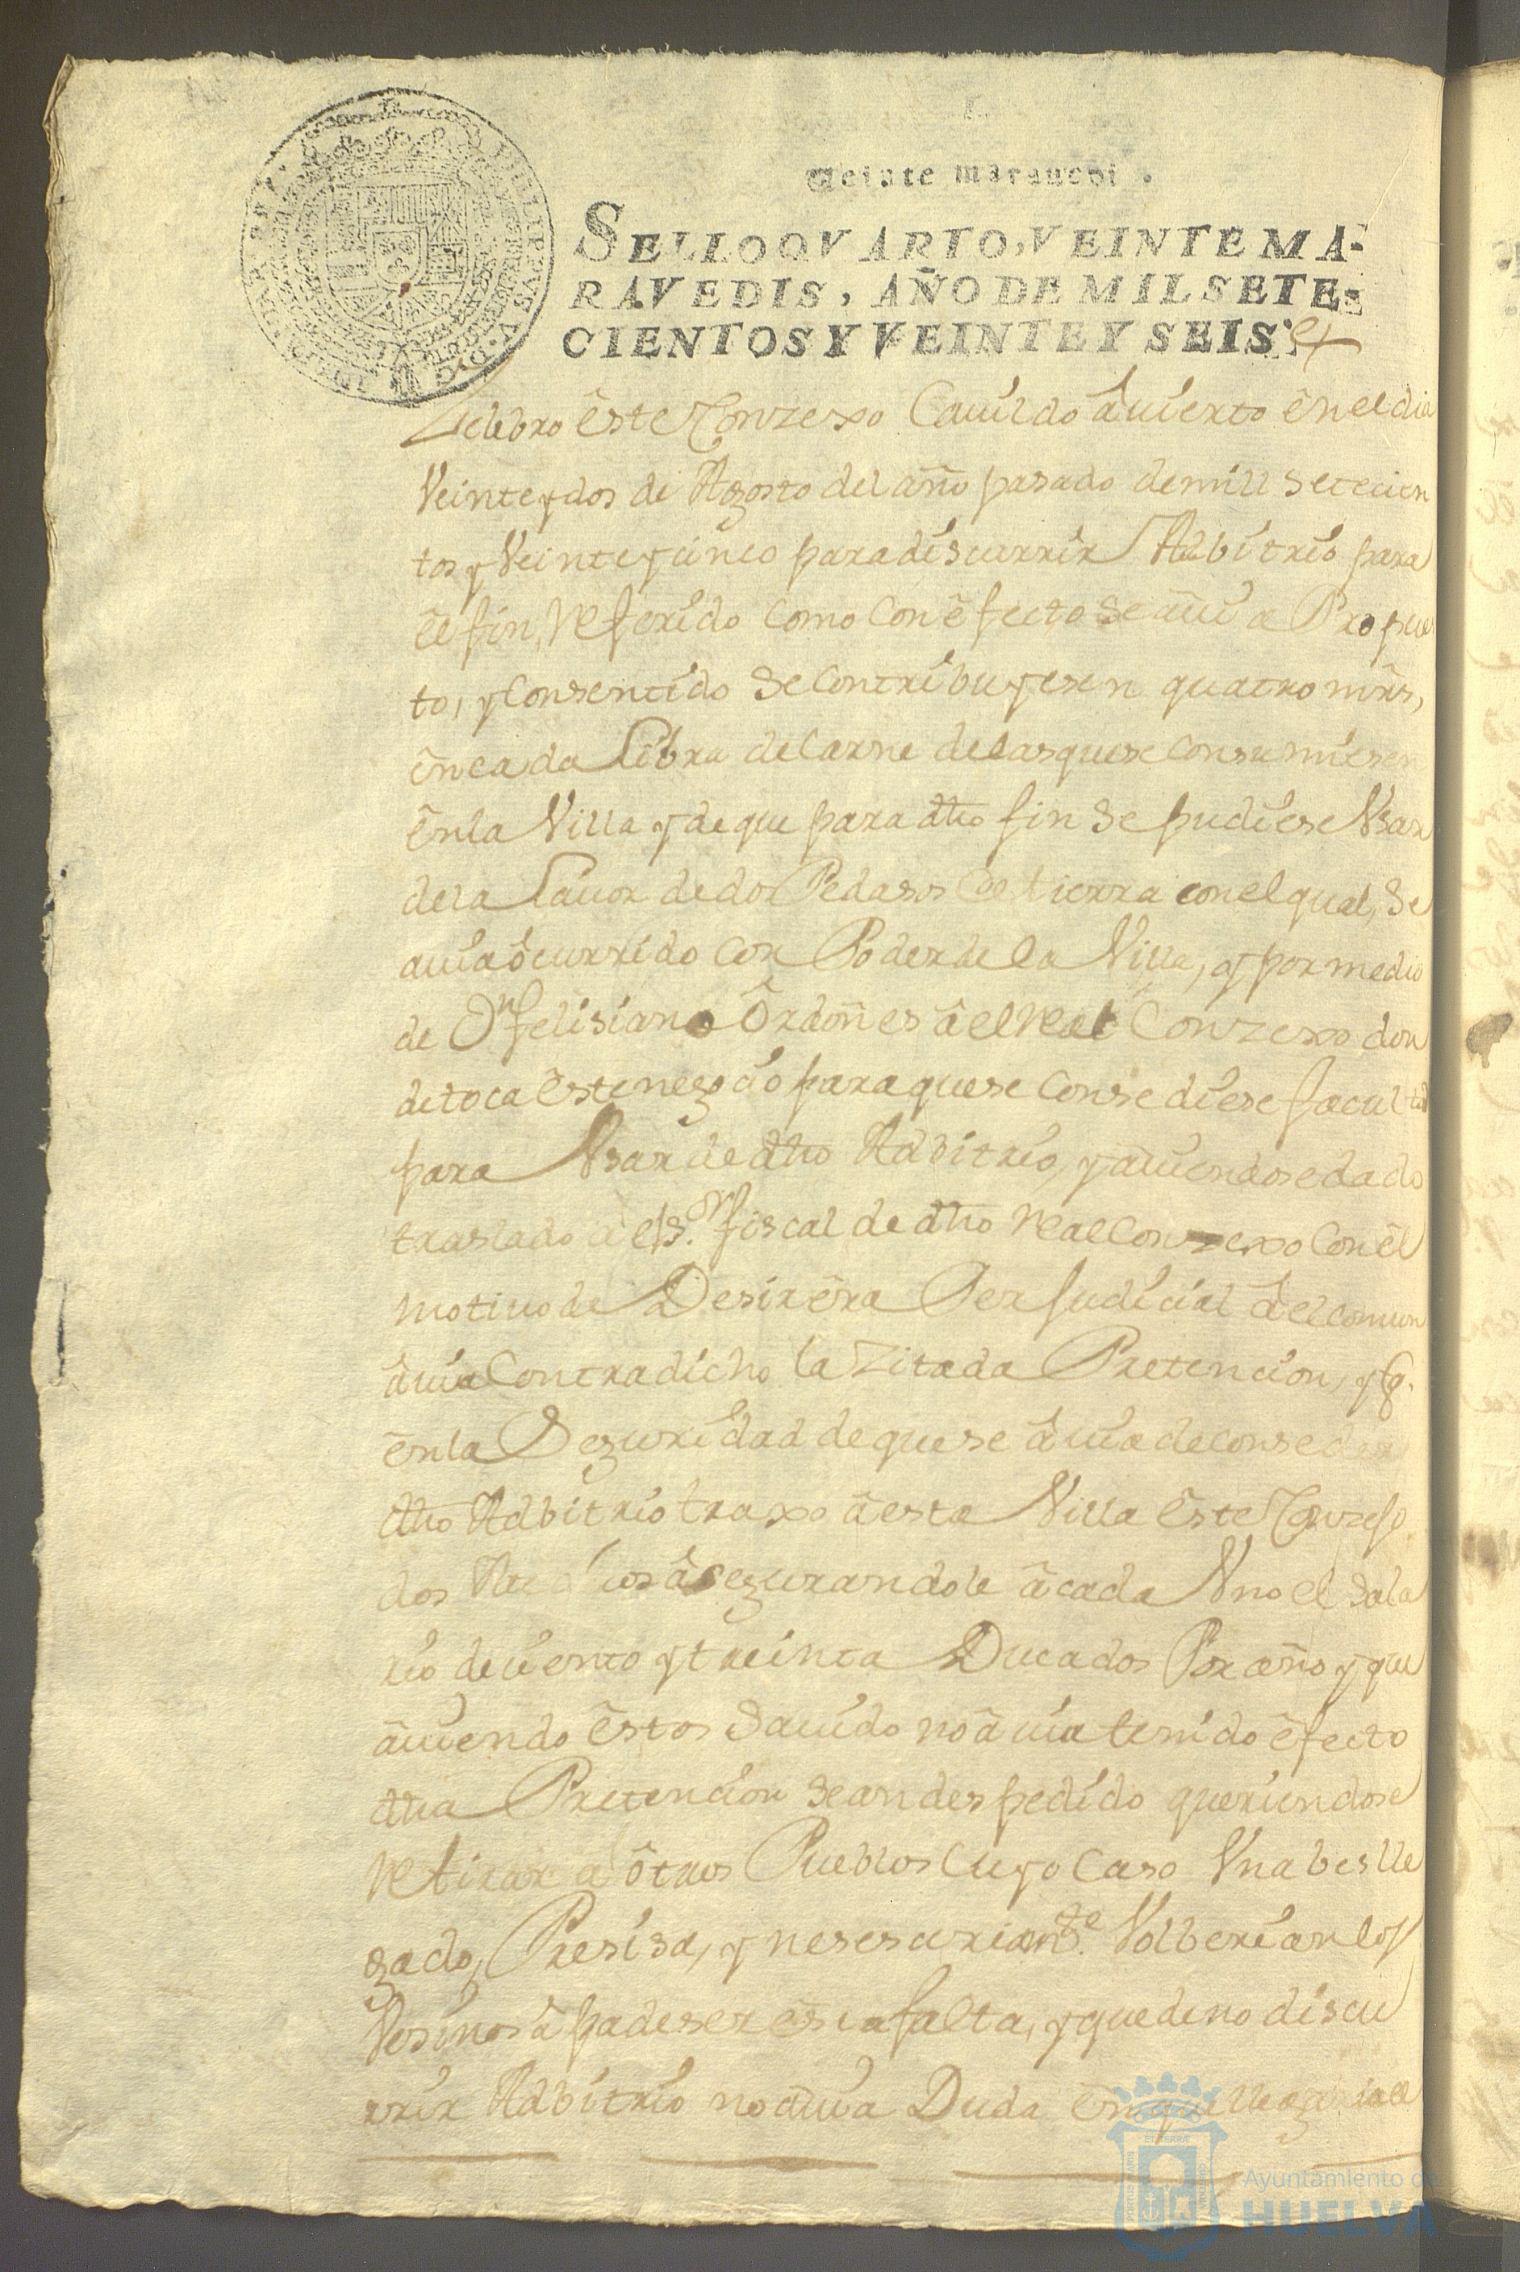 Veinte marauedi .
SELLO QVARTO, VEINTE MA-
RAVEDIS, AÑO DE MIL SETE-
CIENTOS Y VEINTE Y SEIS.
Zelebro êste Conzexo Cauildo âuierto ênel dia
Veinte y dos de Agosto del año pasado de mill setecien
tos y Veinte y cinco para discurrir Adbitrio para
êl fin, Referido como con êfecto se auia Propues
to, y Consentido se Contribuyesen quatro mrs,
ên cada Libra de Carne de las que se Consumiesen
ênla Villa y de que para dho fin se pudiese Vsar
dela Lauor de dos Pedasos de tierra con el qual, se
auia ôcurrido con Poder de la Villa, y por medio
de Dn felisiano Ôrdoñes âel Real Conzexo don
de toca êste negocio para que se Consediese facultad
para Vsar de dho Adbitrio, y auiendose dado
traslado âel Sor. fiscal de dho Real Conzexo Con êl
motiuo de Desir êra Perjudicial âel comun
âuia Contradicho la Zitada Pretencion, y q.
ênla Seguridad de que se âuia de Conseder
dho Adbitrio traxo âesta Villa êste Conzejo
dos Medicos âsegurandole âcada Vno el sala
rio de ciento y treinta Ducados Por año y que
âuiendo êstos sauido no âuia tenido êfecto
dha Pretencion se an despedido queriendose
Retirar a ôtros Pueblos Cuyo Caso Vna bes lle
gado, Presisa, y nesesariamte. Volberian los
Vesinos â padeser êsta falta, y que de no discu
rrir Adbitrio no auia Duda ên que llegaria el
Ayuntamiento de
HUELVA